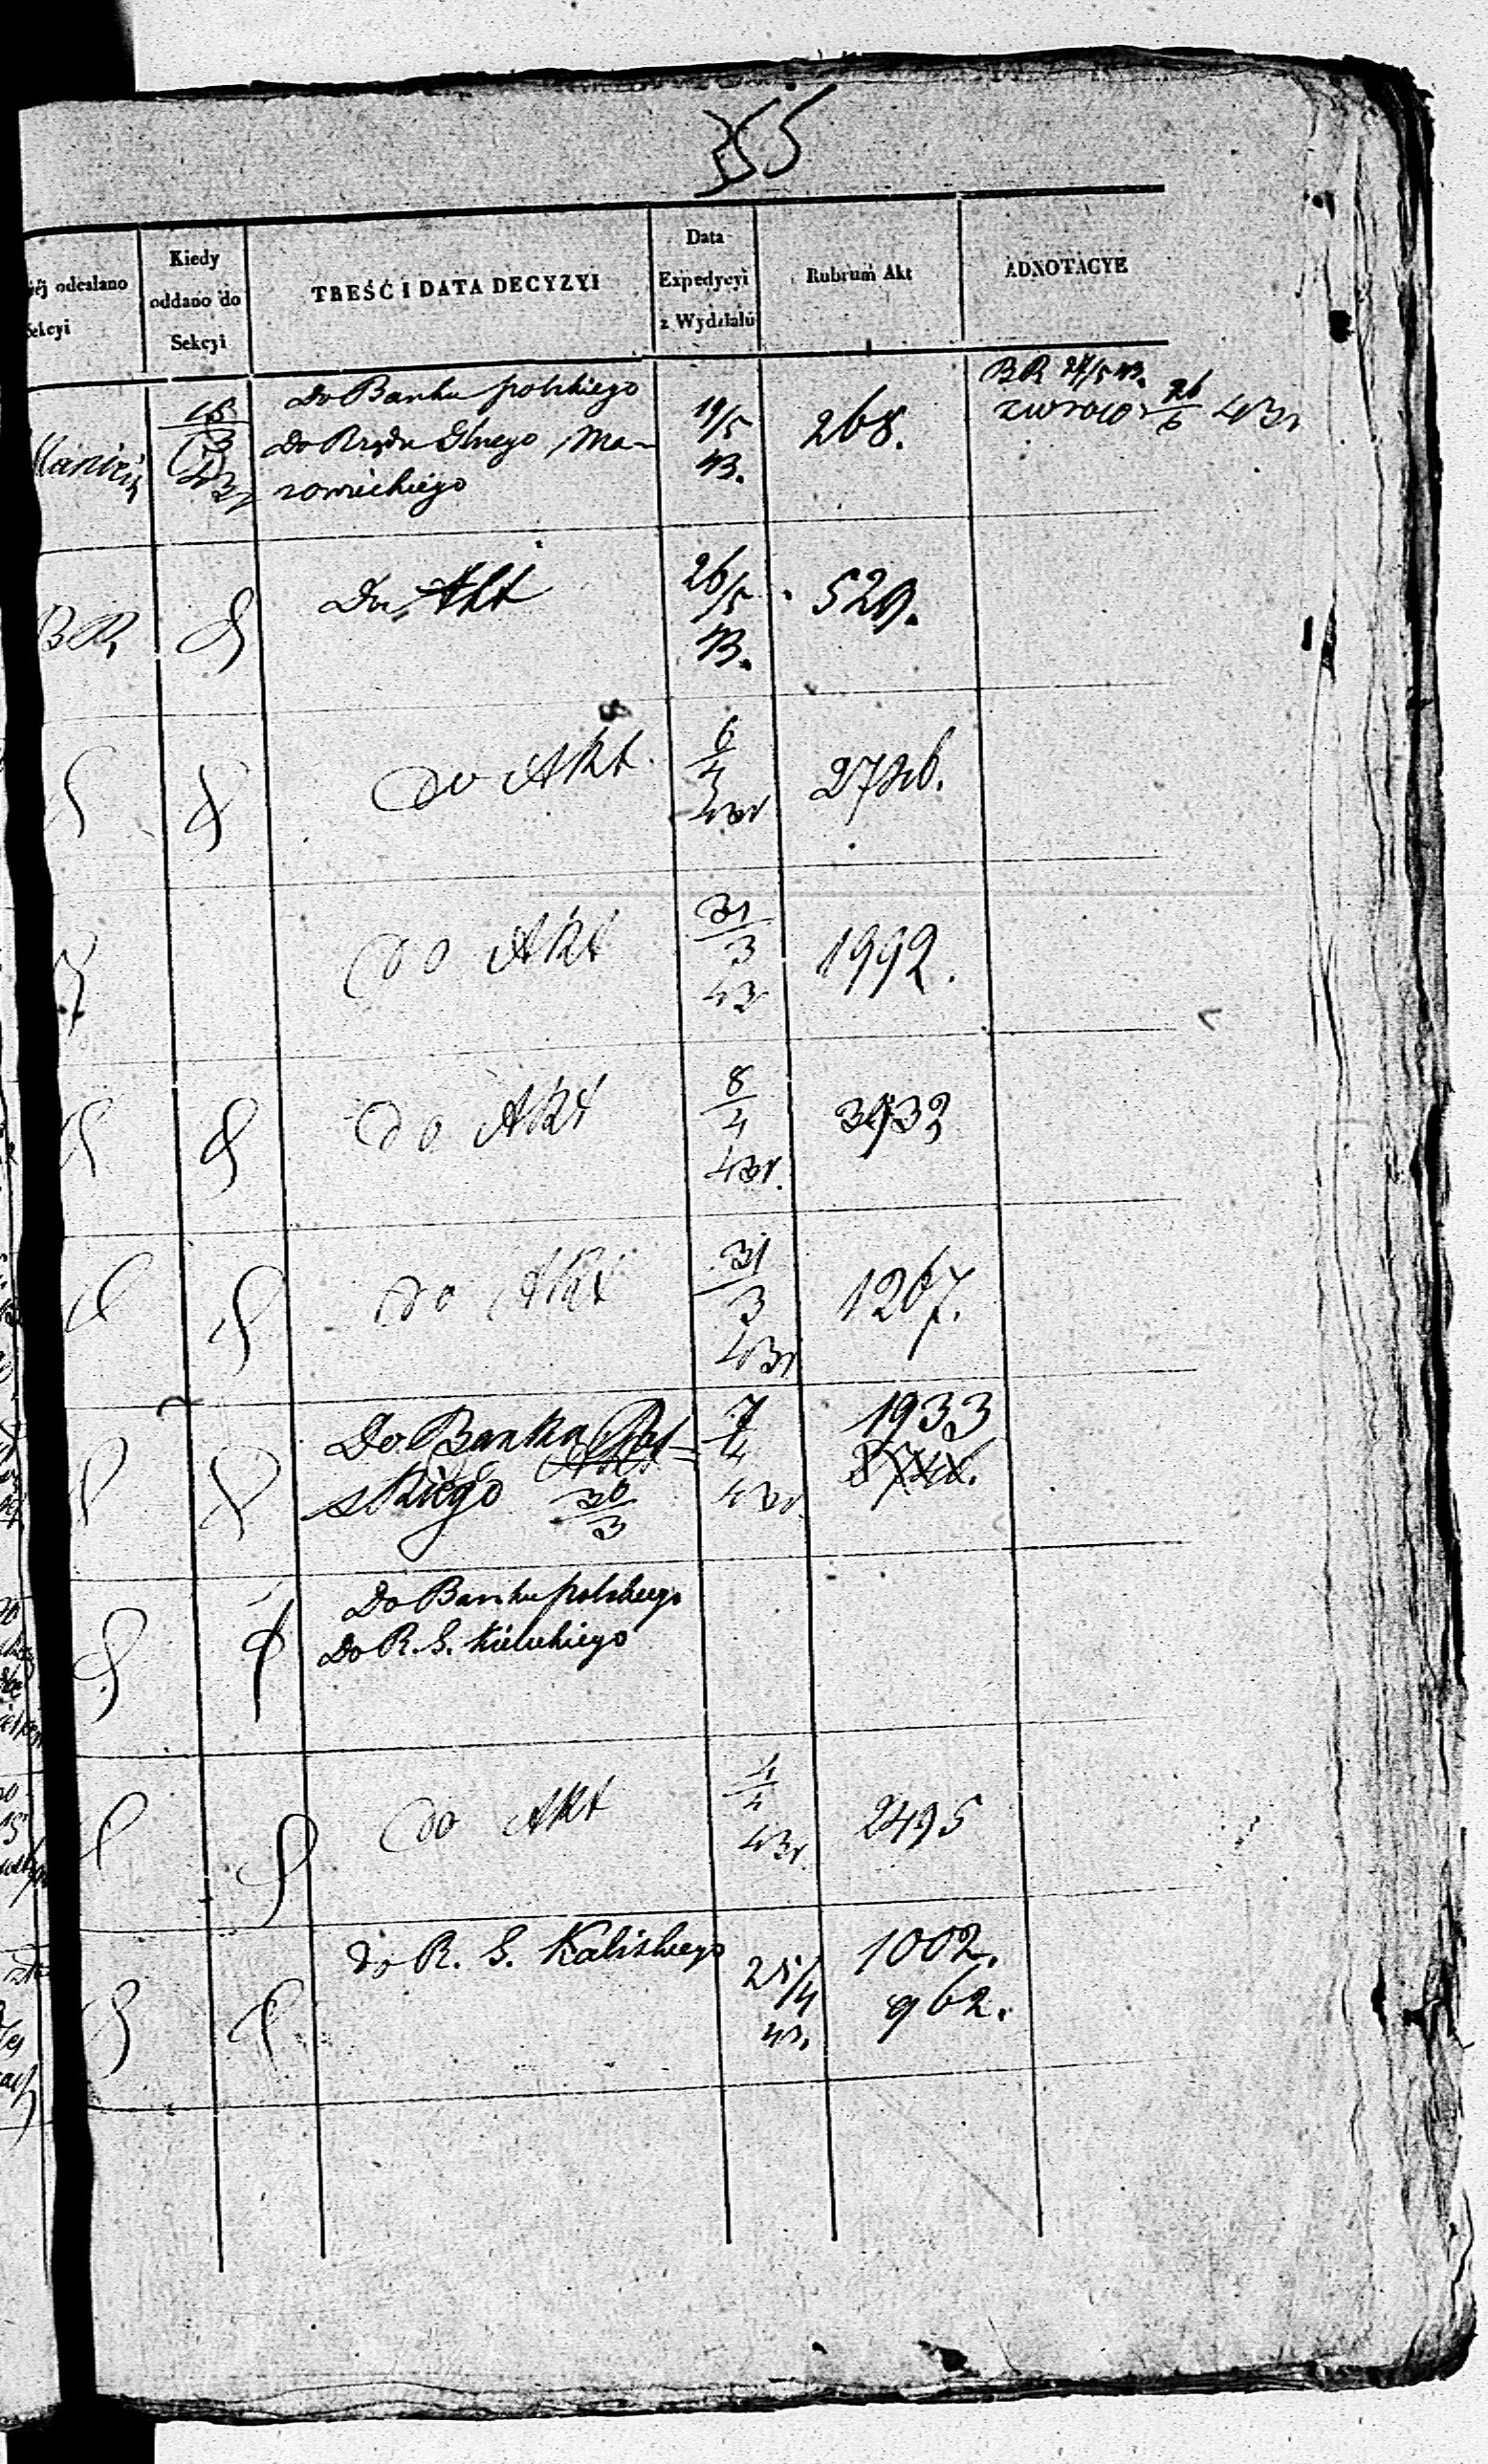 355
odesłano
Sekcyi
Kiedy
oddano do
Sekcyi
TREŚĆ I DATA DECYZYI
Data
Expedycyi
z Wydziału
Rubrum Akt
ADNOTACYE
Do Banku polskiego
Do Rządu Glnego Ma-
zowieckiego
19/5
43.
268.
BR
26/6 43r
BR
Do Akt
26/5
43.
529.
Do Akt.
6/4
43r
Do Akt
31/3
43
1992.
Do Akt
8/4
43r.
3933
Do Akt
31/3
43r
1267.
Do Banku Pol-
skiego 30/3
7/4
43r.
1933
Do Banku polskiego
Do R. G. Kieleckiego
Do Akt
4/4
43r.
2495
do R. G. Kaliskiego
25/4
43.
1002.
962.